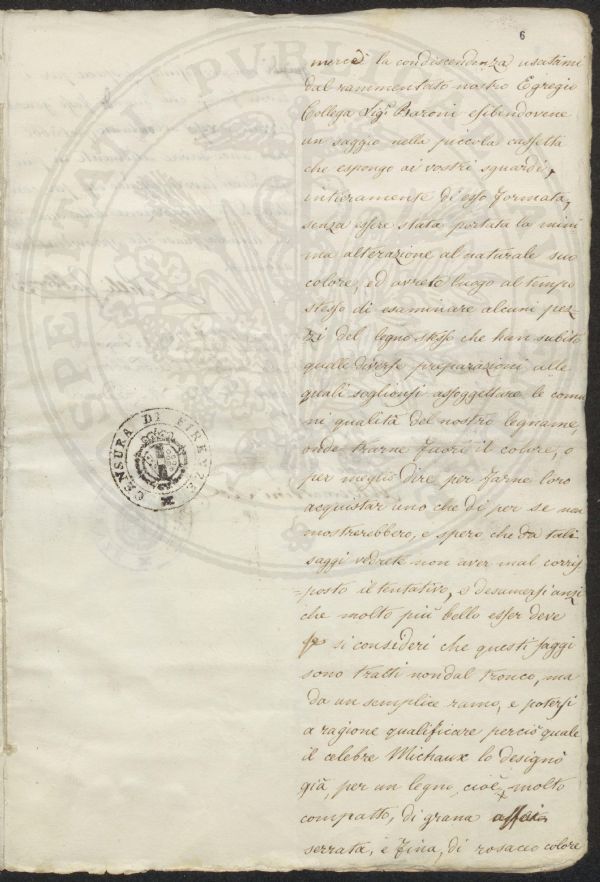 6
mercè la condiscendenza usatami
dal rammentato nostro Egregio
Collega Sigr. Baroni esibendovene
un saggio nella piccola cassetta
che espongo ai vostri sguardi,
intieramente di esso formata,
senza essere stata portata la mini
ma alterazione al naturale suo
colore, ed avrete luogo al tempo
stesso di esaminare alcuni pez-
zi del legno stesso che han subito
quelle diverse preparazioni alle
quali soglionsi assoggettare le comu
ni qualità del nostro legname,
onde trarne fuori il colore, o
per meglio dire per farne loro
acquistar uno che di per se non
mostrerebbero, e spero che da tali
saggi vedrete non aver mal corris
=posto il tentativo, e desumersi anzi
che molto più bello esser deve
se si consideri che questi saggi
sono tratti non dal tronco, ma
da un semplice ramo, e potersi
a ragione qualificare perciò quale
il celebre Michaux lo designò
già, per un legno, cioè, molto
compatto, di grana assai
serrata, e fina, di rosaceo colore
CENSURA DI FIRENZE